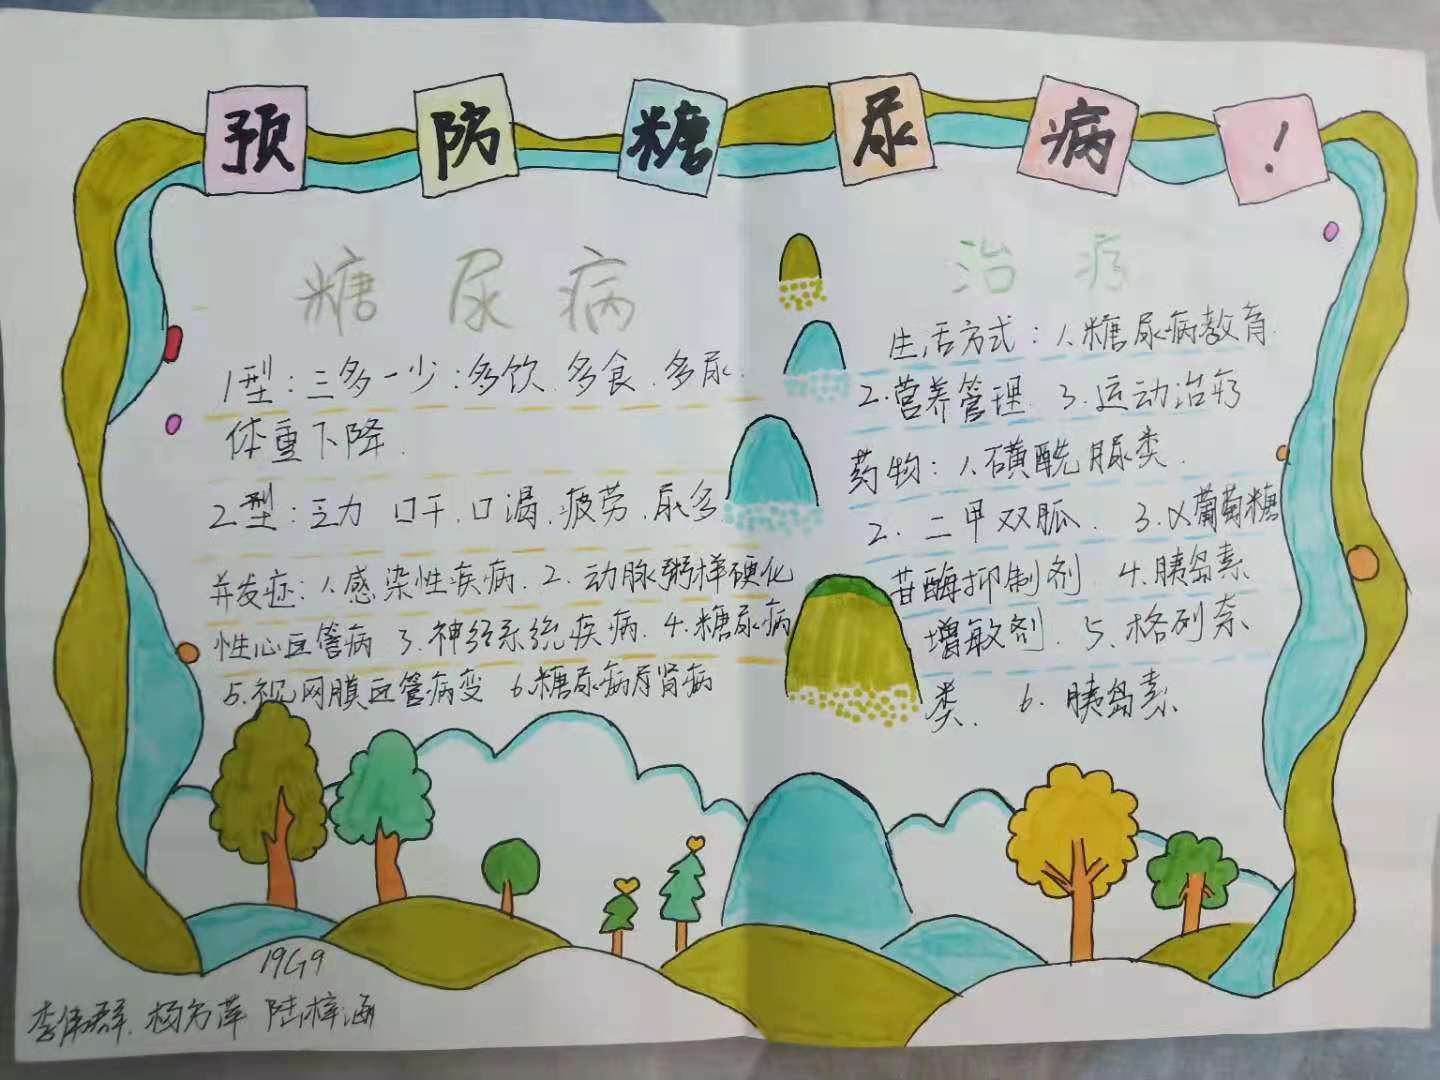 预防糖尿病!
糖尿病
1型:三多一少:多饮.多食.多尿.
体重下降.
2型:主力 口干.口渴.疲劳.尿多
并发症:1.感染性疾病.2.动脉粥样硬化
性心血管病 3.神经系统疾病.4.糖尿病
5.视网膜血管病变 6.糖尿病肾病
治疗
生活方式:1.糖尿病教育.
2.营养管理 3.运动治疗
药物:1.磺酰脲类.
2.二甲双胍. 3.α葡萄糖
苷酶抑制剂 4.胰岛素
增敏剂.5.格列奈
类. 6.胰岛素
19G9
李伟群.杨 萍 陆梓涵